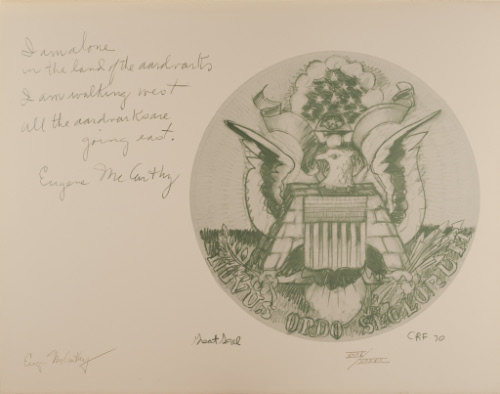 I am alone
in the land of the aardvarks
I am walking west
all the aardvarks are
going east.
Eugene McCarthy
NOVUS ORDO SECLORUM
Great Seal
CRF 70